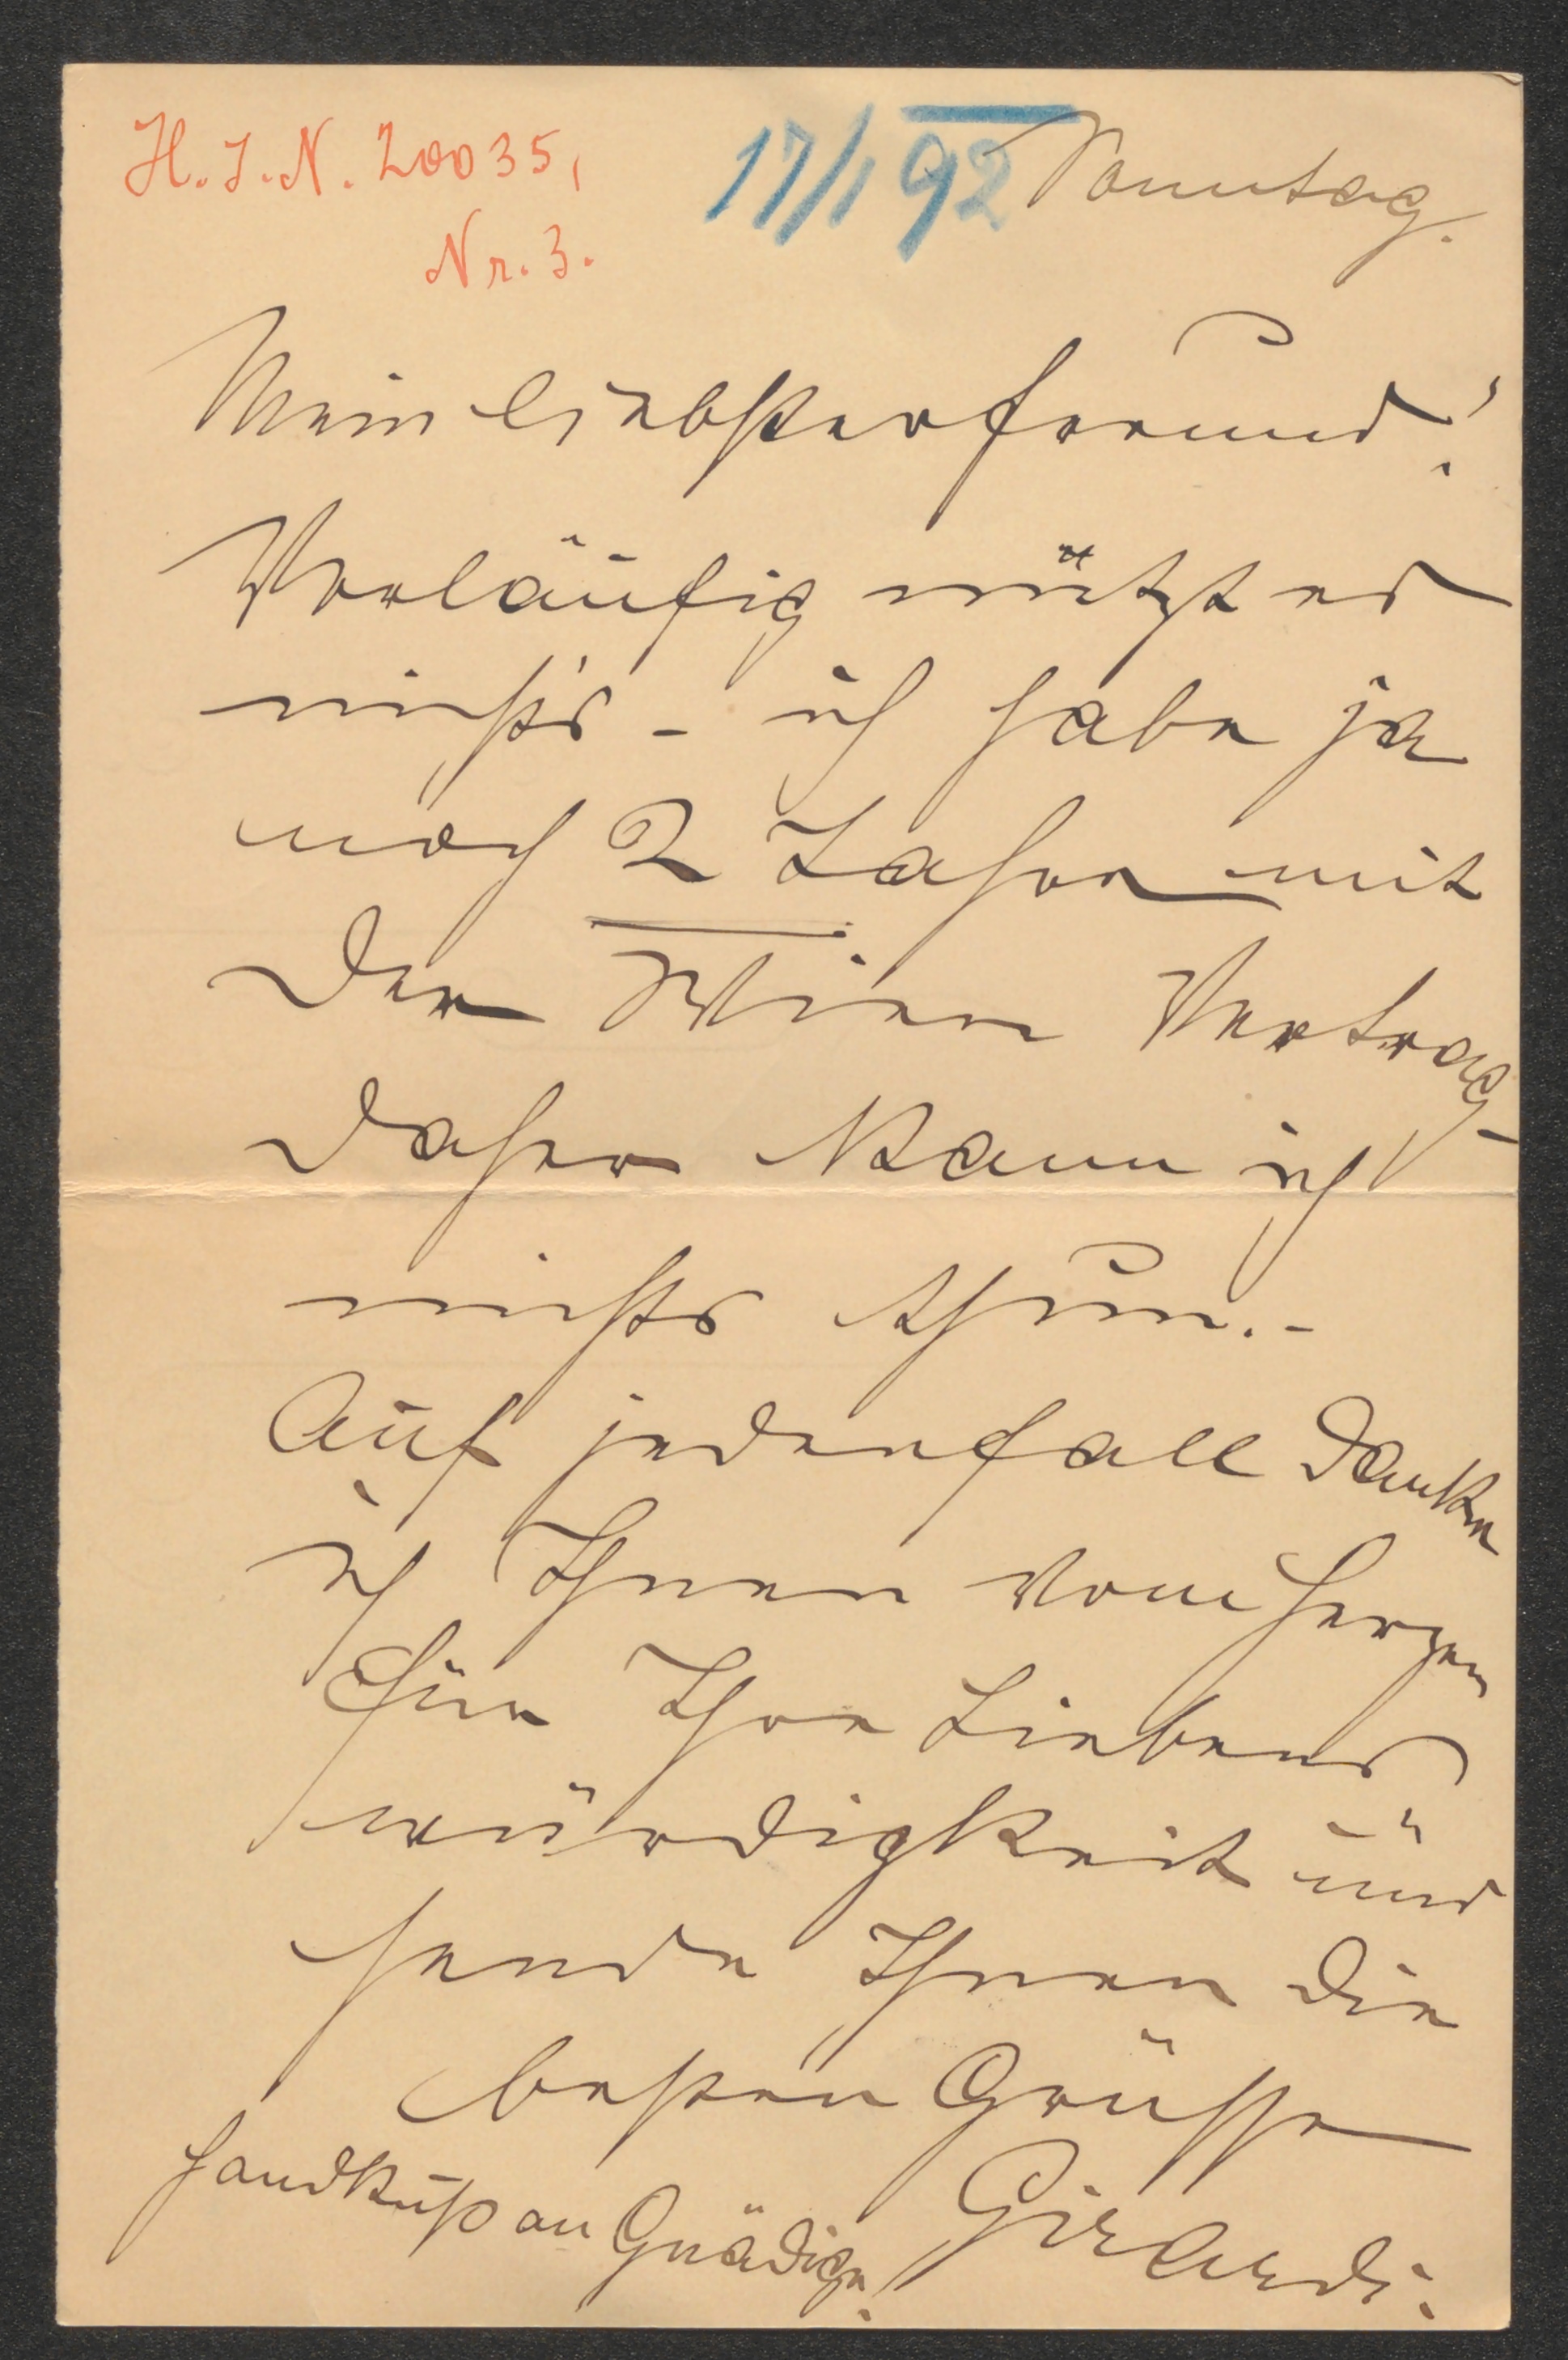 H. I. N. 20035,
Nr. 3.
17/1 92 Sonntag.
Mein liebster Freund!
Vorläufig nützt es
nichts - ich habe ja
noch 2 Jahre mit
der Wien Vertrag -
daher kann ich
nichts thun. -
Auf jedenfall danke
ich Ihnen vom Herzen
für Ihre Liebens
würdigkeit und
sende Ihnen die
besten Grüsse
Girardi.
Handkuß an Gnädige.